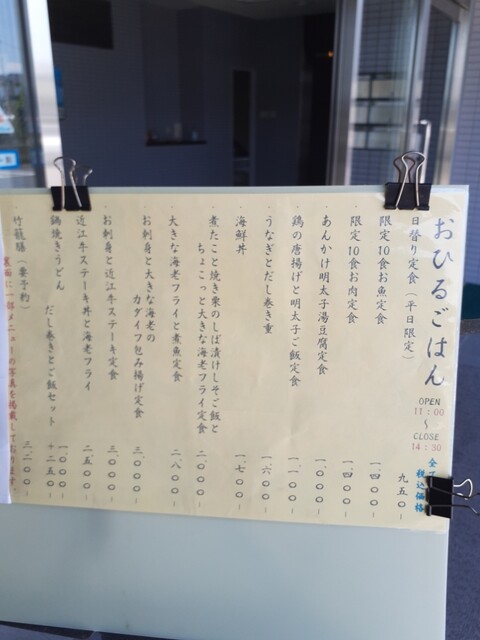 おひるごはん
OPEN
11:00
〜
CLOSE
14:30
税込価格
日替り定食(平日限定) 九五〇-
限定10食お魚定食 一、四〇〇-
限定10食お肉定食 一、四〇〇-
あんかけ明太子湯豆腐定食 一、〇〇〇-
鶏の唐揚げと明太子ご飯定食 一、一〇〇-
うなぎとだし巻き重 一、六〇〇-
海鮮丼 一、七〇〇-
煮たこと焼き栗のしば漬けしそご飯と
ちょこっと大きな海老フライ定食 二、〇〇〇-
大きな海老フライと煮魚定食 一、八〇〇-
お刺身と大きな海老の
カダイフ包み揚げ定食 三、〇〇〇-
お刺身と近江牛ステーキ定食 三、〇〇〇-
近江牛ステーキ丼と海老フライ 二、五〇〇-
鍋焼きうどん 一、一〇〇-
だし巻きとご飯セット +二五〇-
竹籠膳(要予約) 三、二〇〇-
裏面に一部メニューの写真を掲載しております。